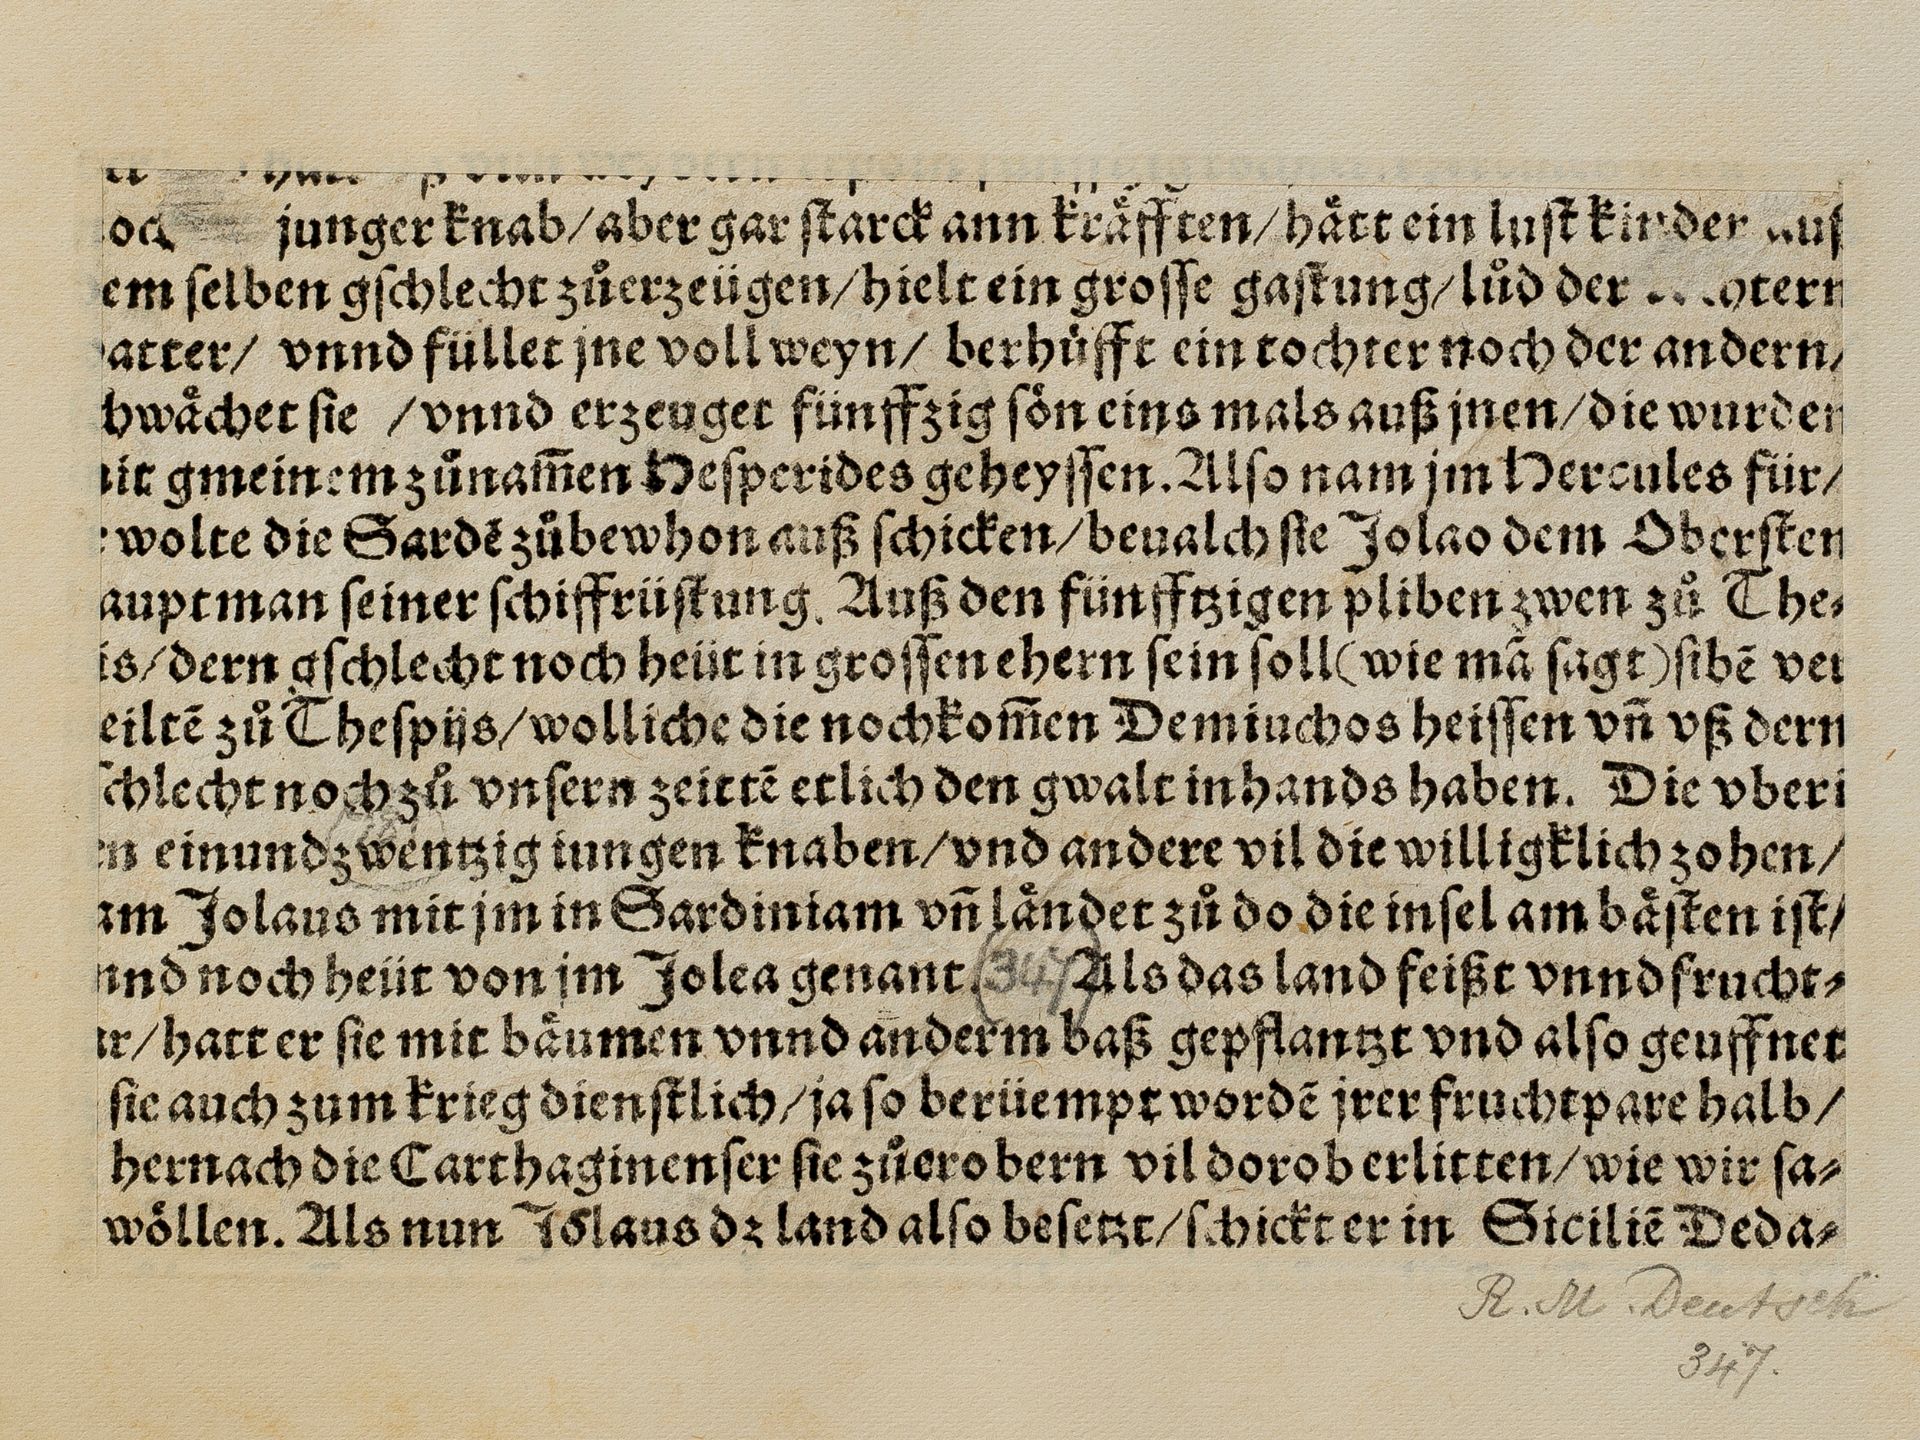 junger knab/aber gar starck ann kräfften/hått ein lust kinder aus
em selben gschlecht zůerzeügen/hielt ein grosse gastung/lůd der
atter/ vnnd füllet jne voll weyn/ berhůfft ein tochter noch der andern/
hwåchet sie /vnnd erzeuget fünffzig sön eins mals auß jnen/die wurden
it gmeinem zůnam̄en Hesperides geheyssen. Also nam jm Hercules für/
wolte die Sardē zůbewhon auß schicken/beualch sie Jolao dem Obersten
auptman seiner schiffrüstung. Auß den fünfftzigen pliben zwen zů The⸗
is/dern gschlecht noch heüt in grossen ehern sein soll(wie mā sagt)sibē ver
eiltē zů Thespijs/wolliche die nochkom̄en Demiuchos heissen vn̄ vß dern
schlecht noch zů vnsern zeittē etlich den gwalt in hands haben. Die vberi
en einundzwentzig iungen knaben/vnd andere vil die willigklich zohen/
am Jolaus mit jm in Sardiniam vn̄ låndet zů do die insel am båsten ist/
nnd noch heüt von jm Jolea genant. (347) Als das land feißt vnnd frucht⸗
ar/hatt er sie mit båumen vnnd anderm baß gepflantzt vnd also geuffnet
sie auch zum krieg dienstlich/ja so berüempt wordē jrer fruchtpare halb/
hernach die Carthaginenser sie zůerobern vil dorob erlitten/wie wir sa⸗
wöllen. Als nun Jolaus dz land also besetzt/schickt er in Siciliē Deda⸗
R. M. Deutsch
347.